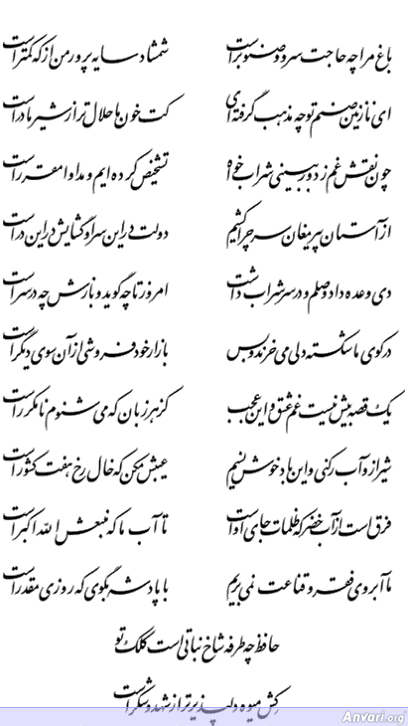 باغ مرا چه حاجت سرو و صنوبر است    شمشاد سایه پرور من از که کمتر است
ای نازنین صنم تو چه مذهب گرفته‌ای    کت خون ما حلال تر از شیر مادر است
چون نقش غم ز دور ببینی شراب خواه    تشخیص کرده‌ایم و مداوا مقرر است
از آستان پیر مغان سر چرا کشیم    دولت در این سرا و گشایش در این در است
دی وعده داد وصلم و در سر شراب داشت    امروز تا چه گوید و بازش چه در سر است
در کوی ما شکسته دلی می خرند و بس    بازار خود فروشی از آن سوی دیگر است
یک قصه بیش نیست غم عشق و این عجب    کز هر زبان که می شنوم نامکرر است
شیراز و آب رکنی و این باد خوش نسیم    عیبش مکن که خال رخ هفت کشور است
فرق است از آب خضر که ظلمات جای او است    تا آب ما که منبعش الله اکبر است
ما آبروی فقر و قناعت نمی بریم    با پادشه بگوی که روزی مقدر است
حافظ چه طرفه شاخ نباتی است کلک تو
کش میوه دلپذیرتر از شهد و شکر است
Anvari.org